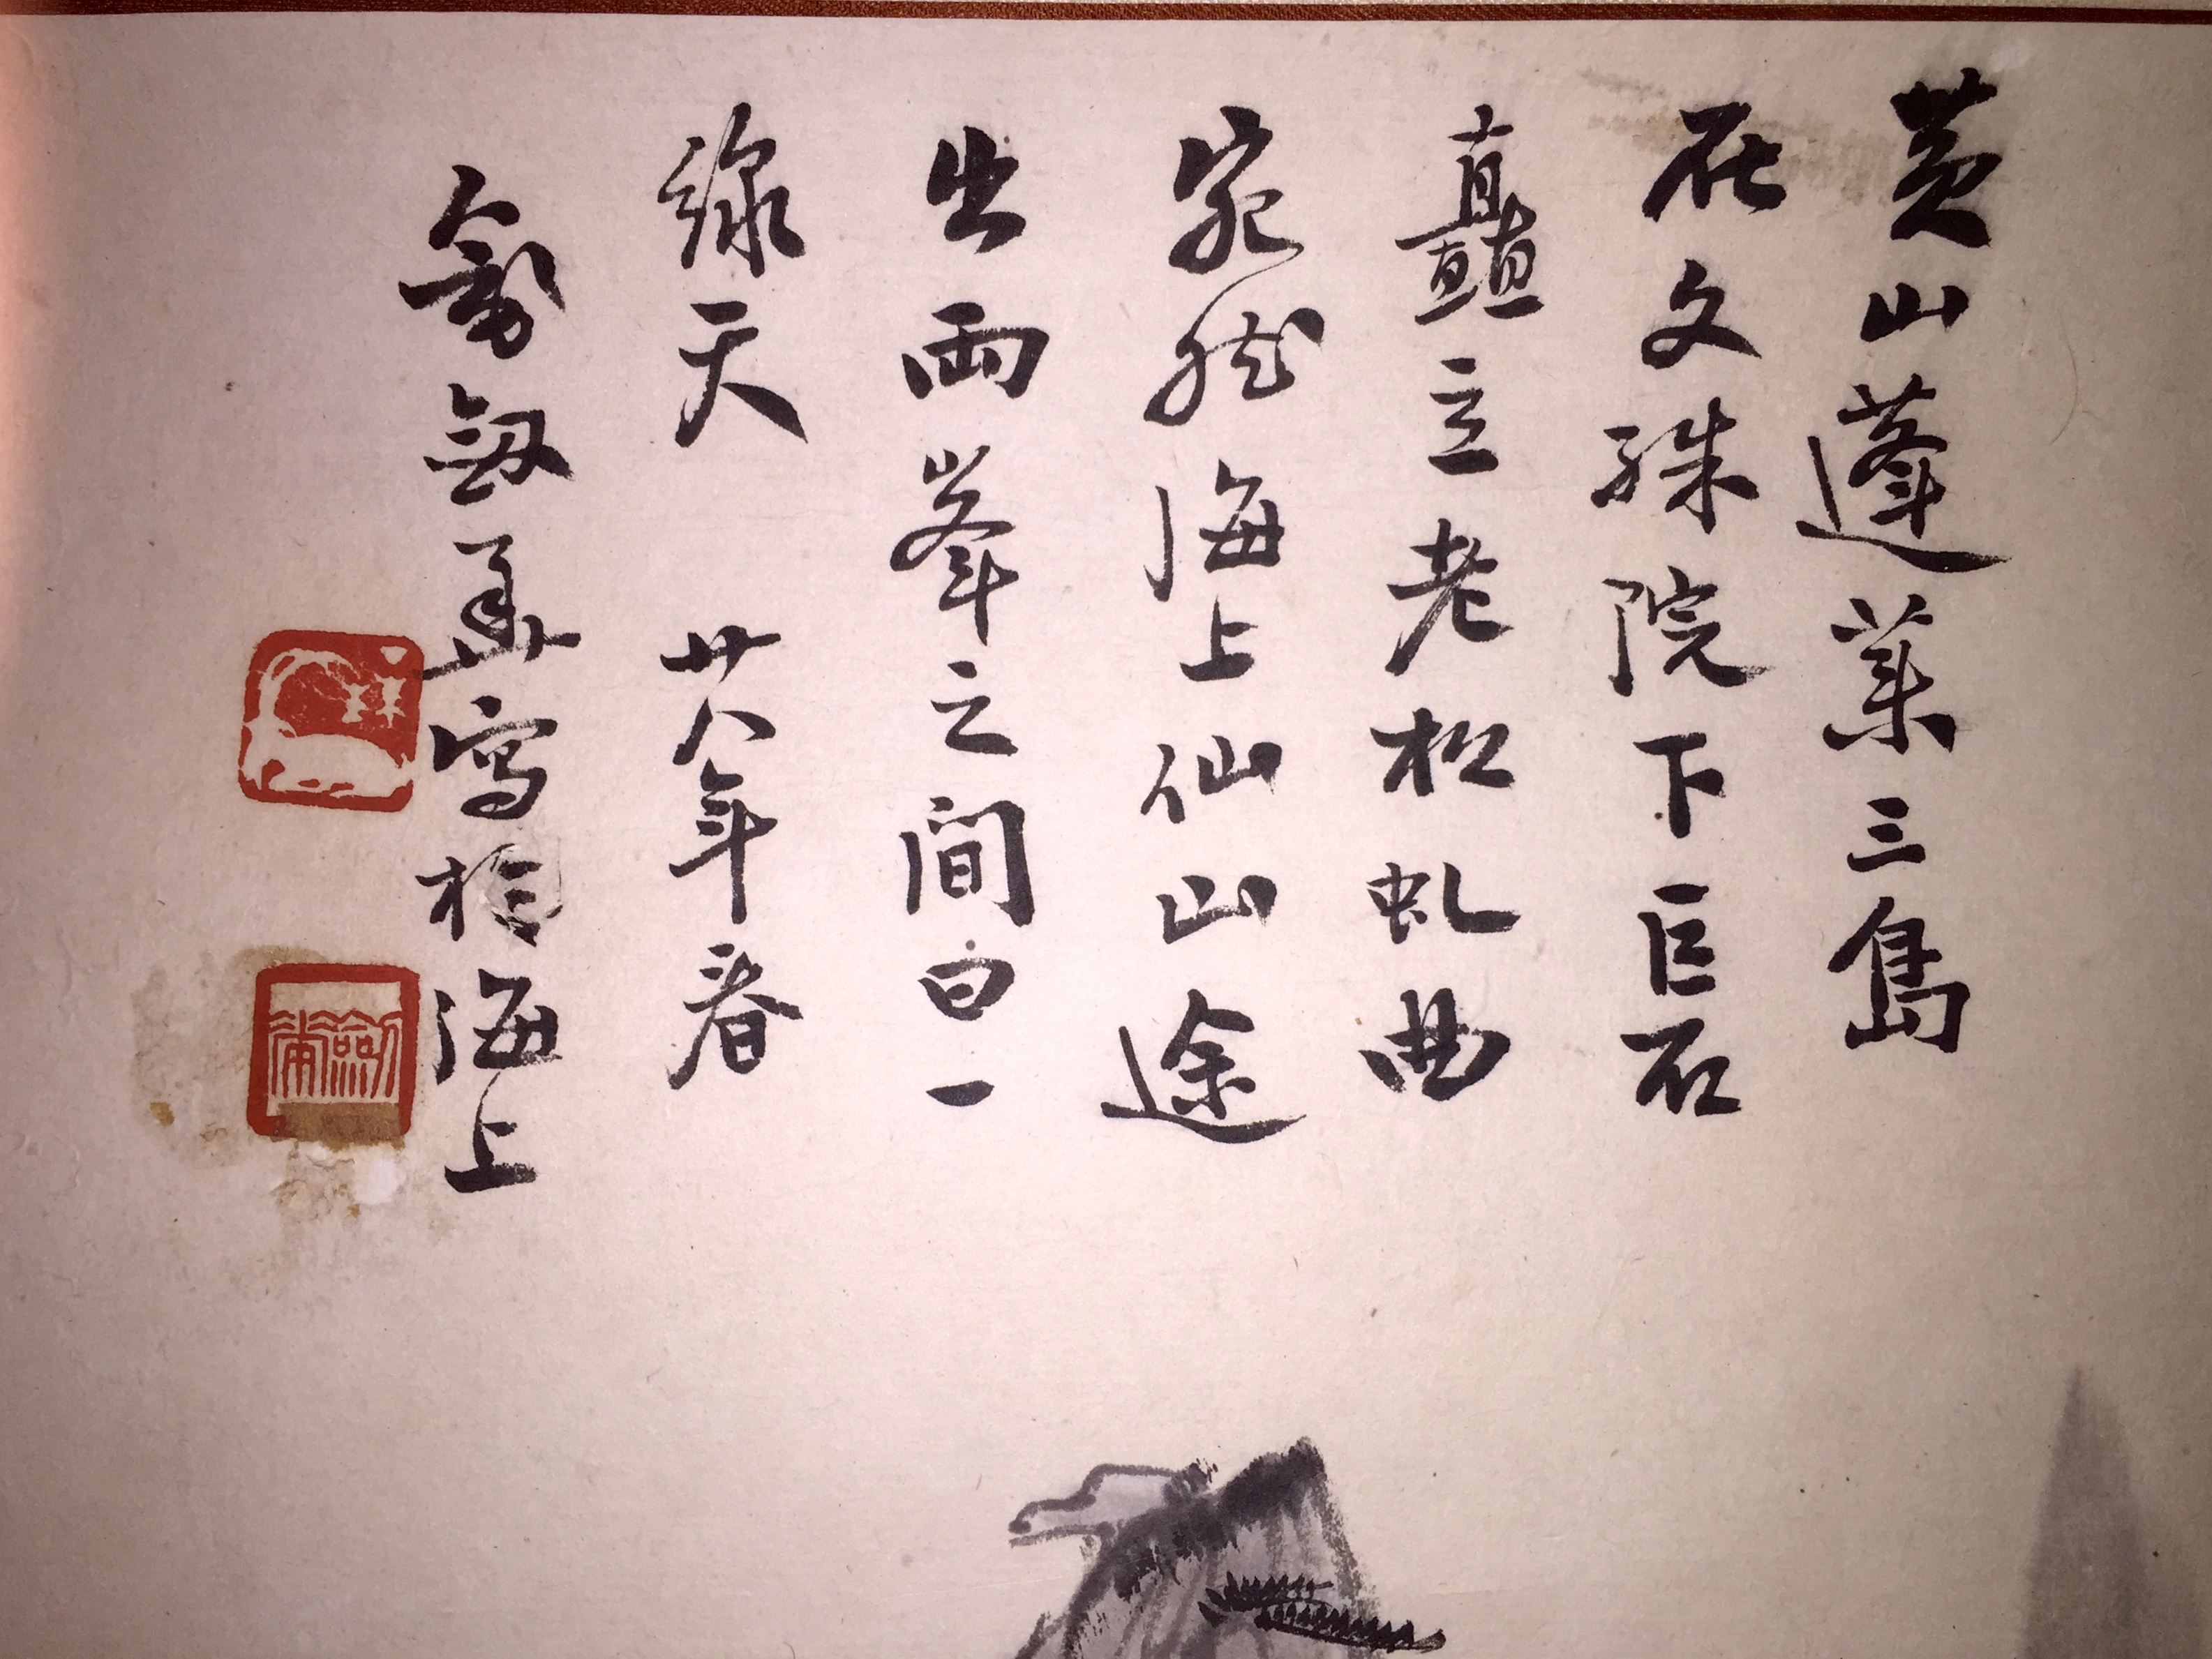 黄山蓬萊三島
在文殊院下巨石
矗立老松虬曲
宛然海上仙山途
出兩峯之間曰一
線天 廿八年春
劍華寫於海上